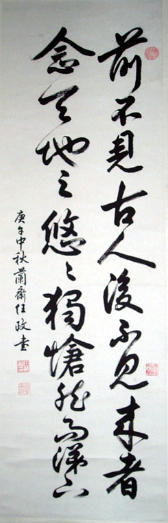 前不見古人後不见来者
念天地之悠々獨愴然而涕下
庚午中秋蘭齋任政書